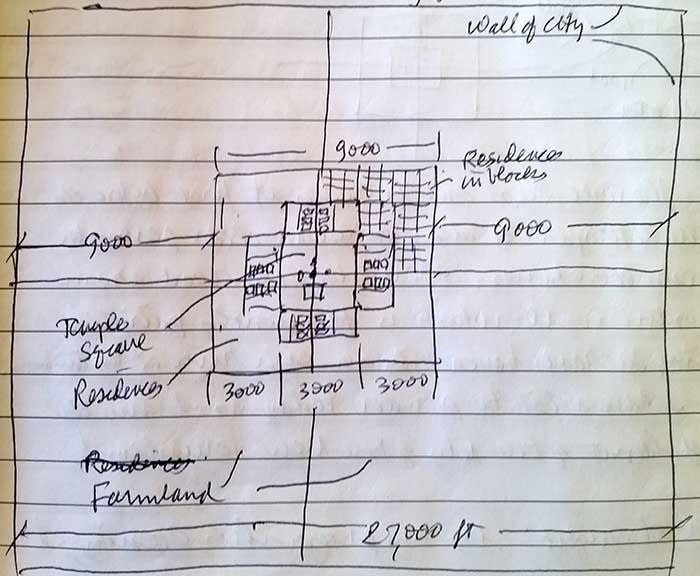 Wall of City
9000
Residences
in blocks
9000
9000
Temple
Square
Residences
3000
3000
3000
Residences
Farmland
27,000 ft